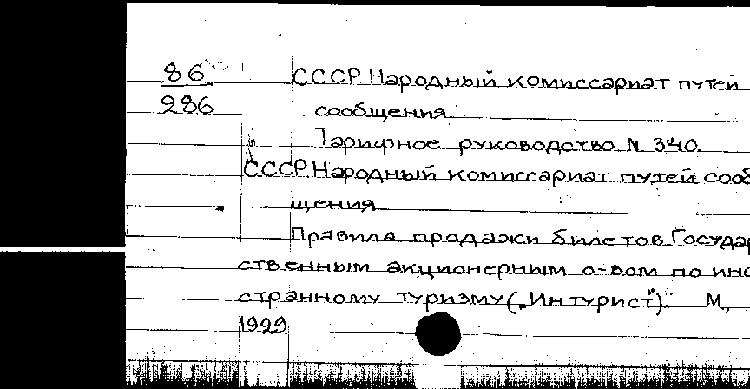 86 СССР. Народный комиссариат путей
286 сообщения.
Тарифное руководство N 340.
СССР. Народный комиссариат путей сооб
щения
Правила продажи билетов Государ
ственным акционерным о-вом по ино
странному туризму („Интурист“). М.,
1929